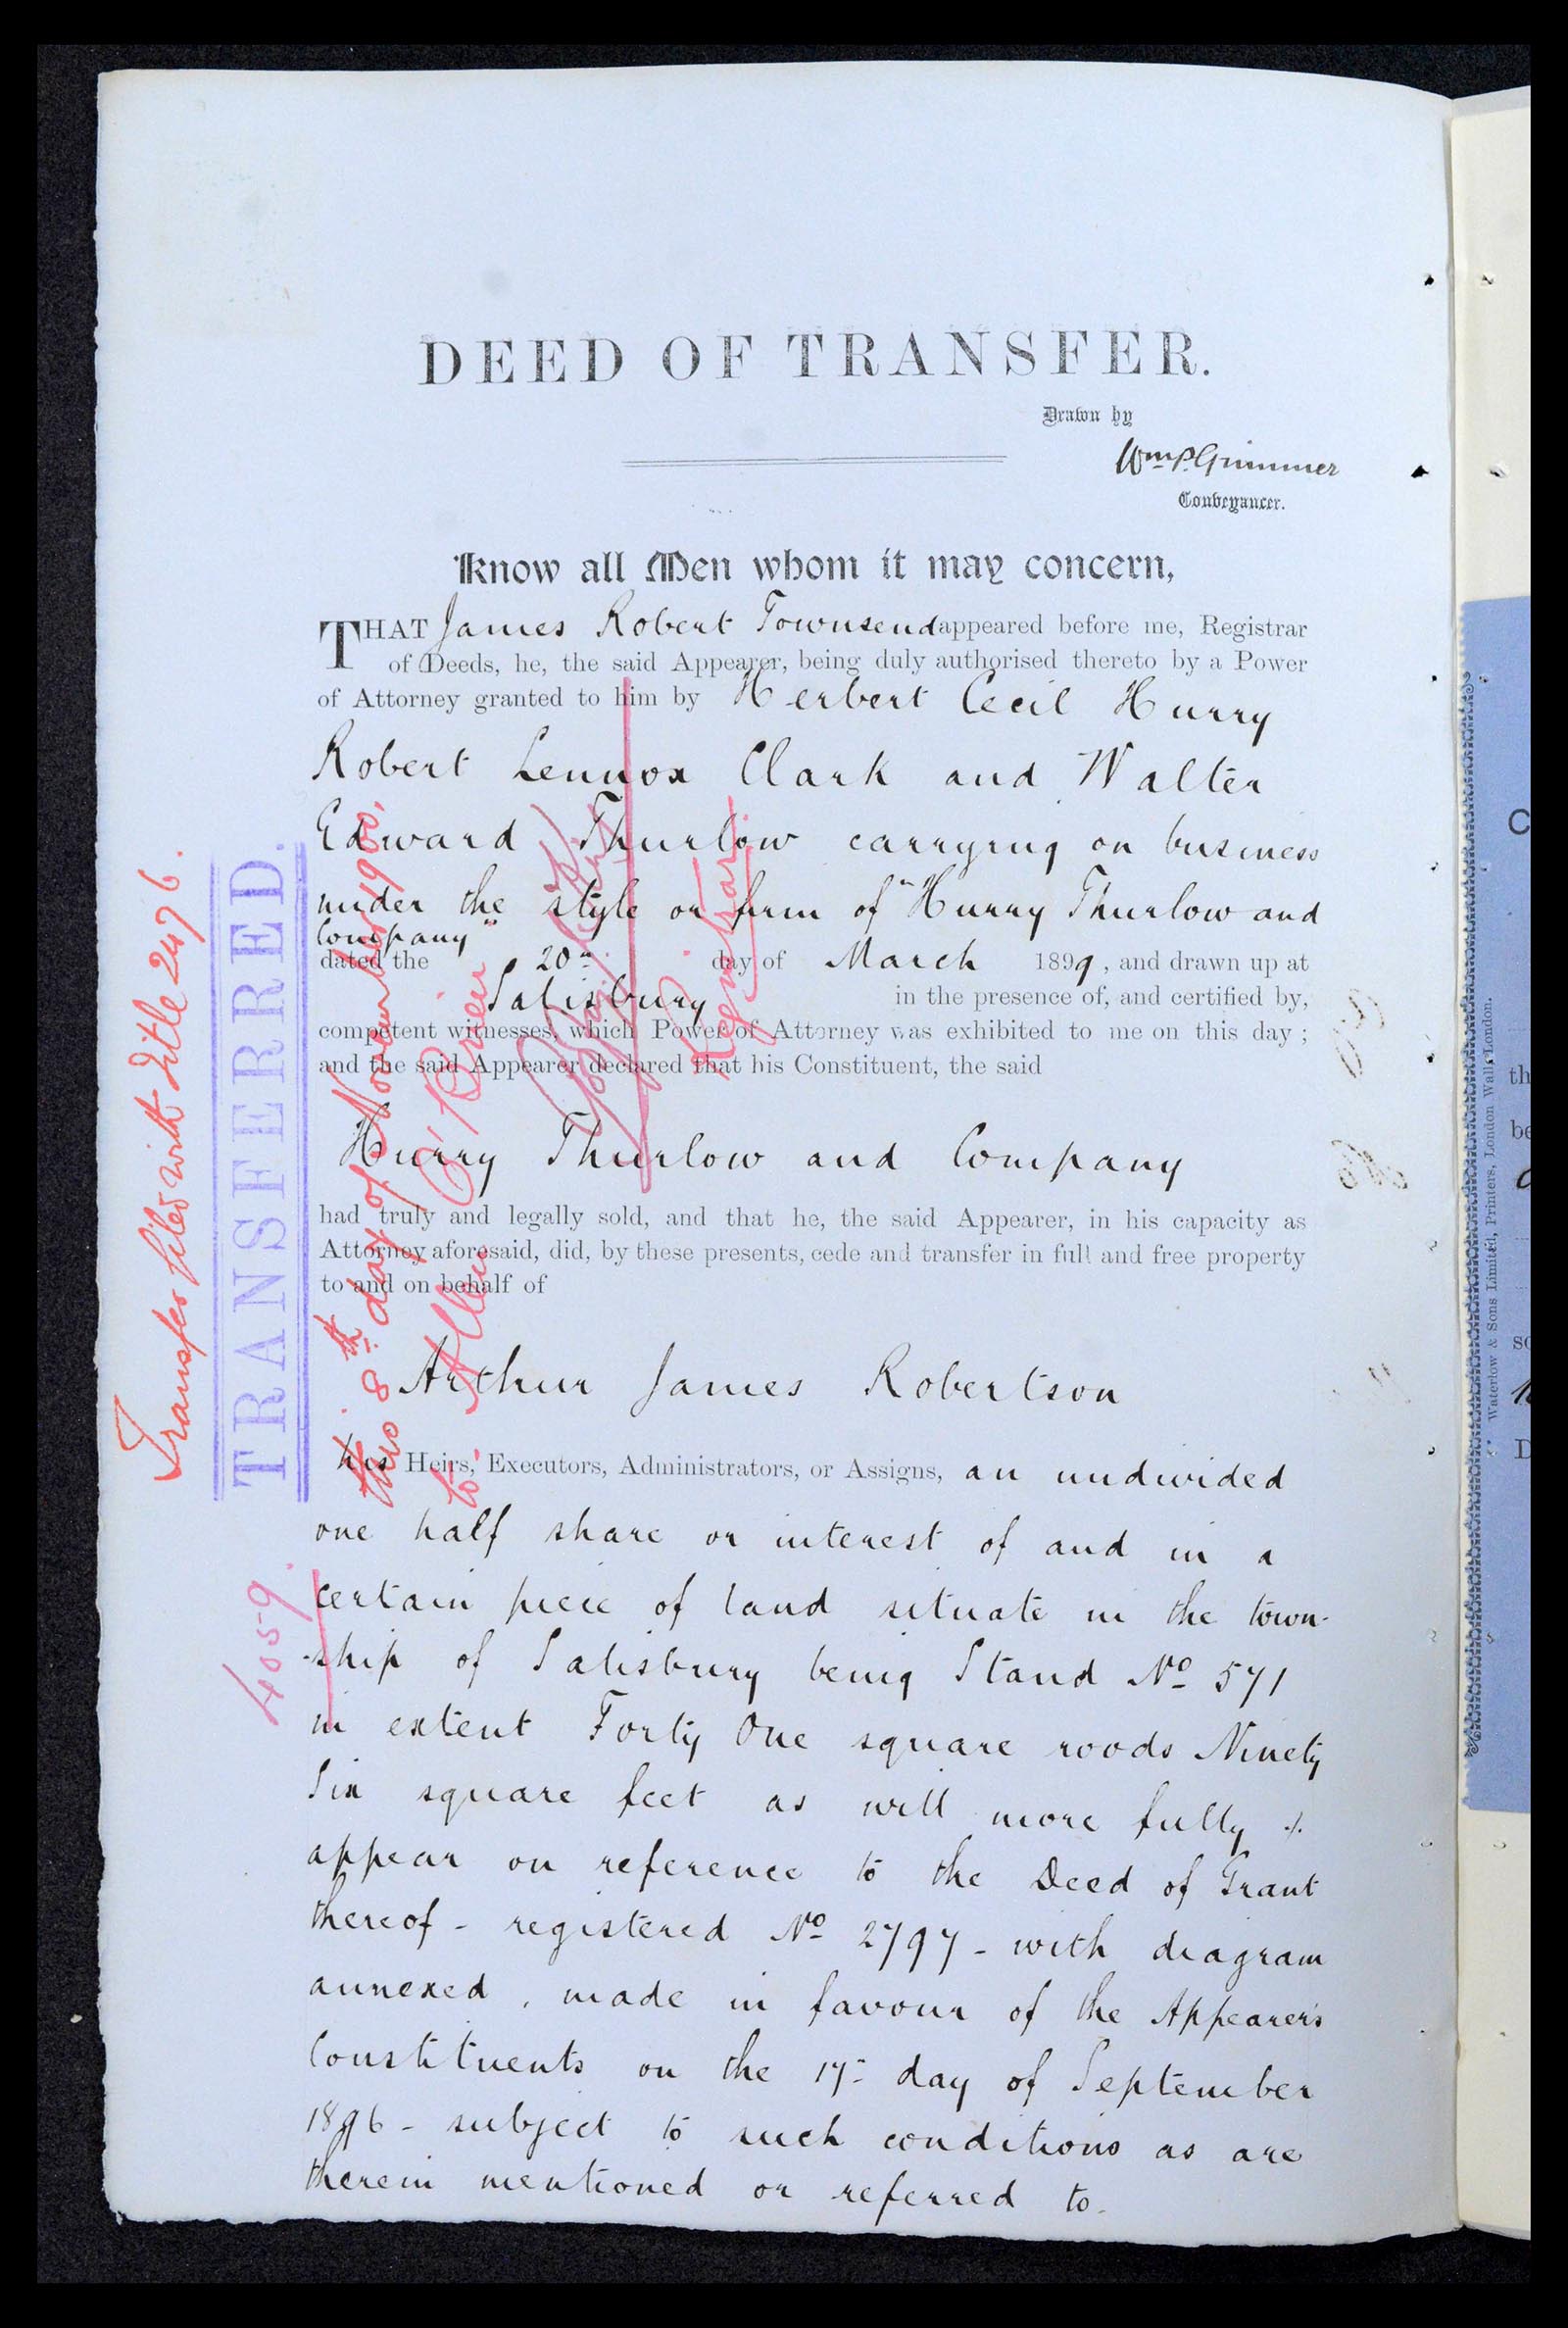 DEED OF TRANSFER.
Drawn by
Wm P. Grimmer
Conveyancer.
Know all Men whom it may concern,
THAT James Robert Townsend appeared before me, Registrar
of Deeds, he, the said Appearer, being duly authorised thereto by a Power
of Attorney granted to him by Herbert Cecil Hurry
Robert Lennox Clark and Walter
Edward Thurlow carrying on business
under the style or firm of "Hurry Thurlow and
Company"
dated the 20th day of March 1899, and drawn up at
Salisbury in the presence of, and certified by,
competent witnesses, which Power of Attorney was exhibited to me on this day;
and the said Appearer declared that his Constituent, the said
Hurry Thurlow and Company
had truly and legally sold, and that he, the said Appearer, in his capacity as
Attorney aforesaid, did, by these presents, cede and transfer in full and free property
to and on behalf of
Arthur James Robertson
his Heirs, Executors, Administrators, or Assigns, an undivided
one half share or interest of and in a
certain piece of land situate in the town-
-ship of Salisbury being Stand No 571
in extent Forty One square roods Ninety
Six square feet as will more fully
appear on reference to the Deed of Grant
thereof - registered No 2797 - with diagram
annexed, made in favour of the Appearer's
Constituents on the 17th day of September
1896 - subject to such conditions as are
therein mentioned or referred to.
Transfer filed with Title 2496.
TRANSFERRED.
this 8th day of November 1900.
to Allen
Registrar.
4059.
Waterlow & Sons Limited, Printers, London Wall, London.